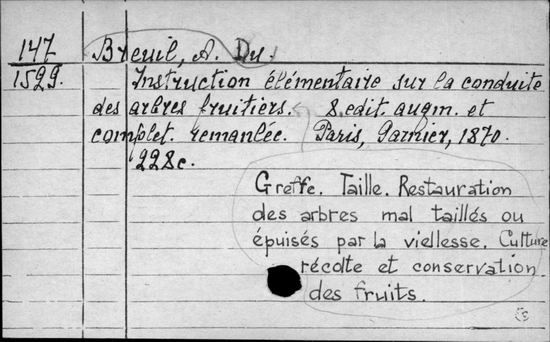 147
1529.
Breuil, A. Du.
Instruction élémentaire sur la conduite
des arbres fruitiers. 8. edit. augm. et
complet. remanlée. Paris, Garnier, 1870.
228c.
Greffe. Taille. Restauration
des arbres mal taillés ou
épuisés par la viellesse. Culture
récolte et conservation
des fruits.